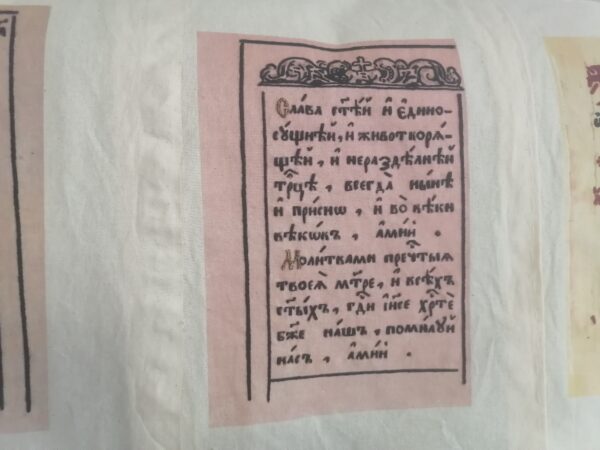 Сла́ва ст҃ѣ́й и҆ є҆дино-
сꙋ́щнѣй, и҆ животворѧ́-
щей, и҆ нераздѣ́лнѣй
трⷪ҇цѣ, всегда̀ ны́нѣ
и҆ при́снѡ, и҆ во̀ вѣ́ки
вѣкѡ́въ, а҆ми́нь.
Моли́твами пречⷭ҇тыѧ
твоеѧ̀ мт҃ре, и҆ всѣ́хъ
ст҃ы́хъ, гдⷭ҇и і҆и҃се хрⷭ҇тѐ
бж҃е на́шъ, поми́лꙋй
на́съ, а҆ми́нь.